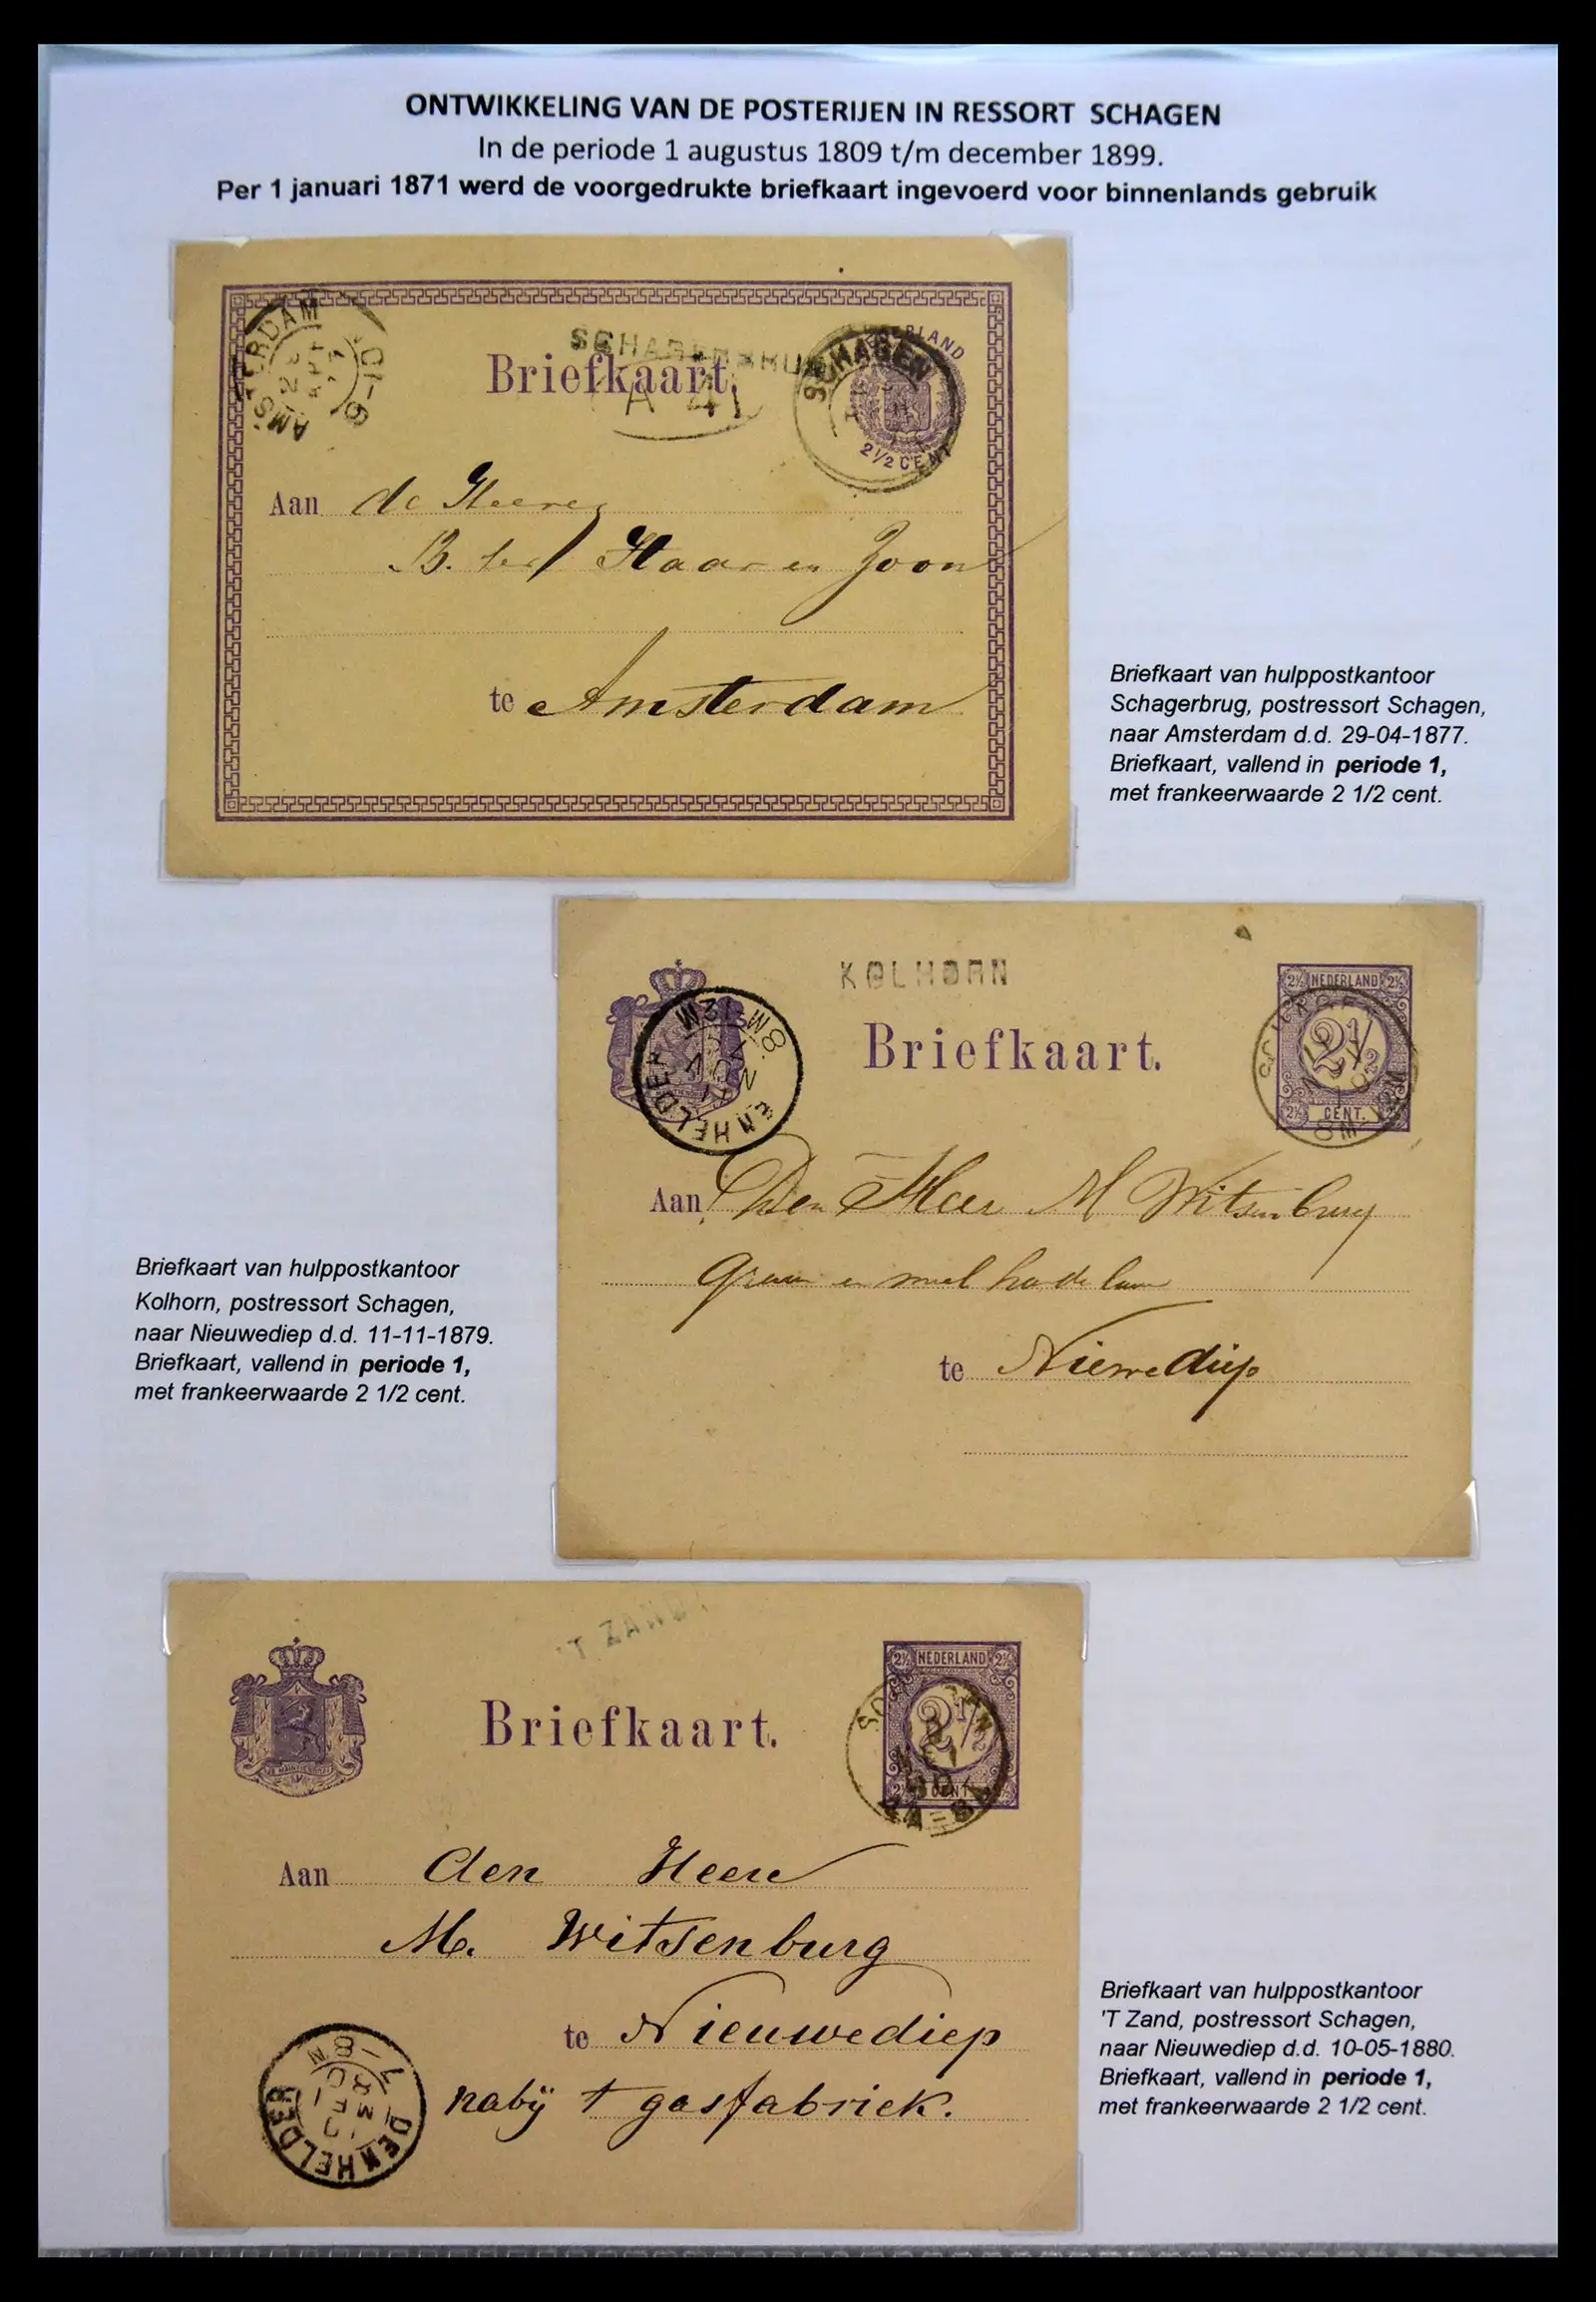 ONTWIKKELING VAN DE POSTERIJEN IN RESSORT SCHAGEN
In de periode 1 augustus 1809 t/m december 1899.
Per 1 januari 1871 werd de voorgedrukte briefkaart ingevoerd voor binnenlands gebruik
AMSTERDAM
SCHAGERBRUG
NEDERLAND
SCHAGEN
Briefkaart.
A 41
2½ CENT
Aan de Heeren
B. ter Haar en Zoon
te Amsterdam
Briefkaart van hulppostkantoor
Schagerbrug, postressort Schagen,
naar Amsterdam d.d. 29-04-1877.
Briefkaart, vallend in periode 1,
met frankeerwaarde 2 1/2 cent.
KOLHORN
2½ NEDERLAND 2½
2½
2½ CENT. 2½
SCHAGEN
8M-12M
DEN HELDER
8M-12M
Briefkaart.
Aan Den Heer M Witsenburg
graan en meel handelaar
te Nieuwediep
Briefkaart van hulppostkantoor
Kolhorn, postressort Schagen,
naar Nieuwediep d.d. 11-11-1879.
Briefkaart, vallend in periode 1,
met frankeerwaarde 2 1/2 cent.
'T ZAND
2½ NEDERLAND 2½
2½
2½ CENT
SCHAGEN
JE MAINTIENDRAI
Briefkaart.
Aan den Heere
M. Witsenburg
te Nieuwediep
nabij t gasfabriek.
DEN HELDER
7-8N
Briefkaart van hulppostkantoor
'T Zand, postressort Schagen,
naar Nieuwediep d.d. 10-05-1880.
Briefkaart, vallend in periode 1,
met frankeerwaarde 2 1/2 cent.